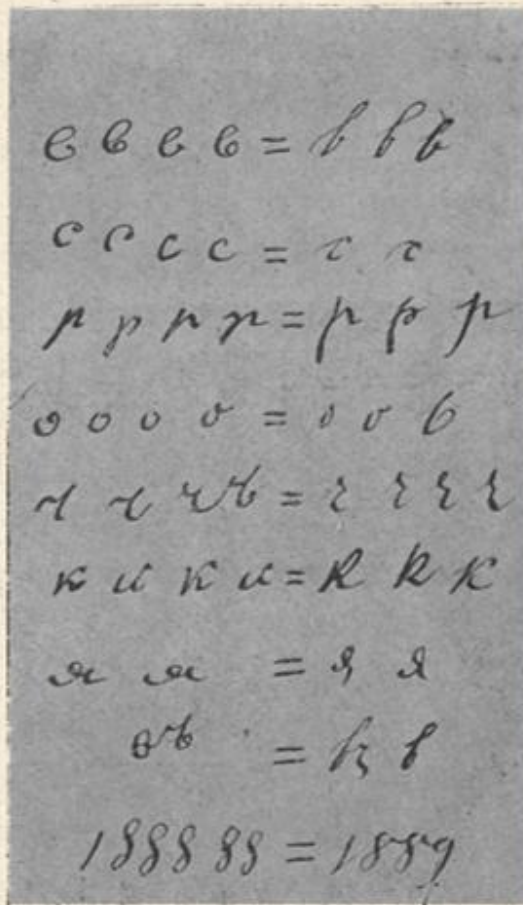 в в в в = в в в
с с с с = с с
р р р р = р р р
о о о о = о о о
ч ч ч ъ = ч ч ч ч
к к к к = к к к
я я = я я
въ = въ в
1888 88 = 1889